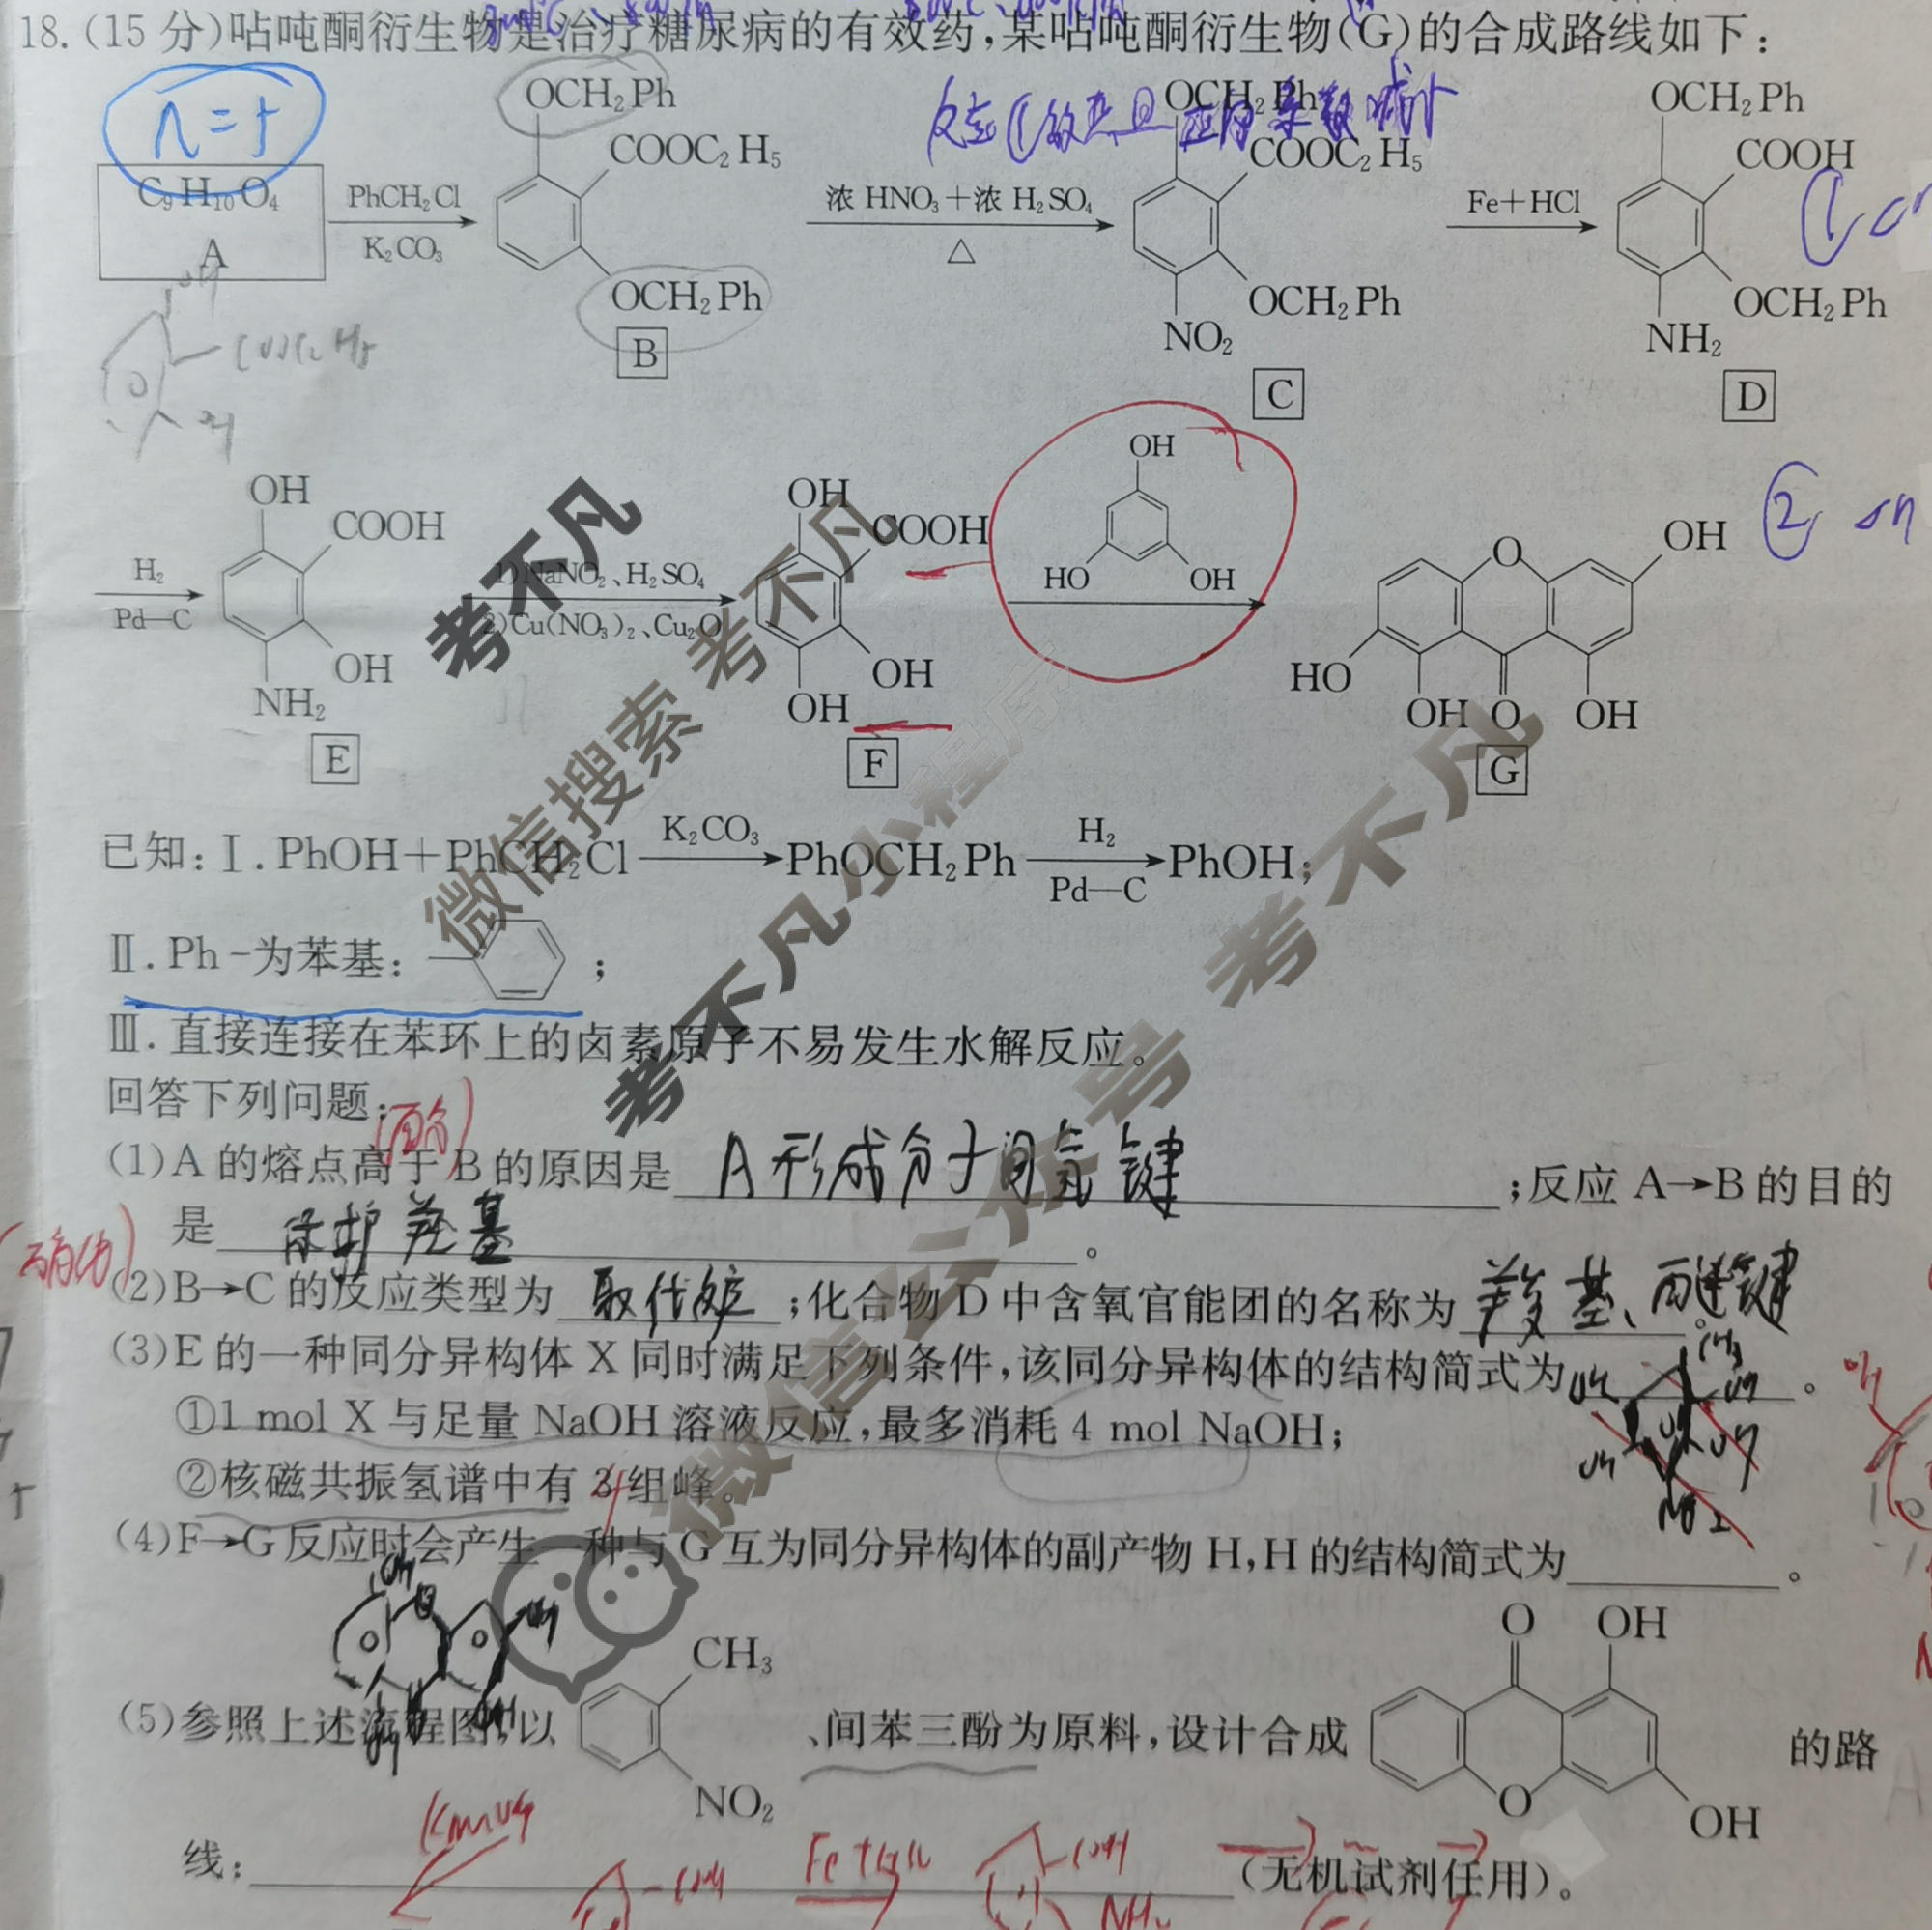 18.(15分)呫吨酮衍生物是治疗糖尿病的有效药,某呫吨酮衍生物(G)的合成路线如下:
n=5
C₉H₁₀O₄
A
PhCH₂Cl
K₂CO₃
OCH₂Ph
COOC₂H₅
OCH₂Ph
B
浓HNO₃+浓H₂SO₄
△
OCH₂Ph
COOC₂H₅
OCH₂Ph
NO₂
C
Fe+HCl
OCH₂Ph
COOH
OCH₂Ph
NH₂
D
H₂
Pd—C
OH
COOH
OH
NH₂
E
1)NaNO₂、H₂SO₄
2)Cu(NO₃)₂、Cu₂O
OH
COOH
OH
OH
F
OH
HO
OH
O
OH
HO
OH
O
OH
G
已知:Ⅰ.PhOH+PhCH₂Cl
K₂CO₃
PhOCH₂Ph
H₂
Pd—C
PhOH;
Ⅱ.Ph-为苯基: ;
Ⅲ.直接连接在苯环上的卤素原子不易发生水解反应。
回答下列问题:
(1)A的熔点高于B的原因是 A形成分子间氢键 ;反应A→B的目的
是 保护羟基 。
(2)B→C的反应类型为 取代反应 ;化合物D中含氧官能团的名称为 羧基、醚键 。
(3)E的一种同分异构体X同时满足下列条件,该同分异构体的结构简式为 。
①1 mol X与足量NaOH溶液反应,最多消耗4 mol NaOH;
②核磁共振氢谱中有3组峰。
(4)F→G反应时会产生一种与G互为同分异构体的副产物H,H的结构简式为 。
(5)参照上述流程图,以
CH₃
NO₂
、间苯三酚为原料,设计合成
O
OH
O
OH
的路
线: (无机试剂任用)。
考不凡
微信搜索 考不凡
考不凡小程序
微信公众号 考不凡